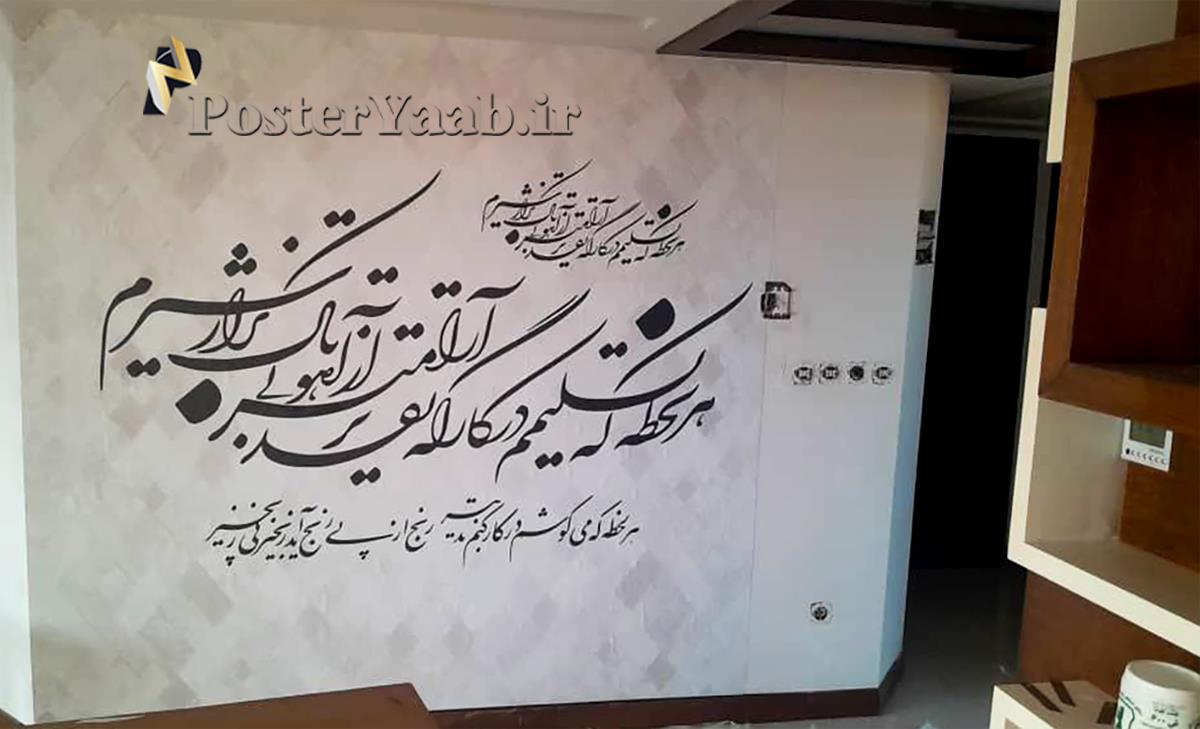 PosterYaab.ir
هر لحظه که تسلیمم در کارگه تقدیر آرامتر از آهو بی باک ترم از شیر
هر لحظه که تسلیمم در کارگه تقدیر آرامتر از آهو بی باک ترم از شیر
هر لحظه که می کوشم در کار کنم تدبیر رنج از پی رنج آید زنجیر پی زنجیر